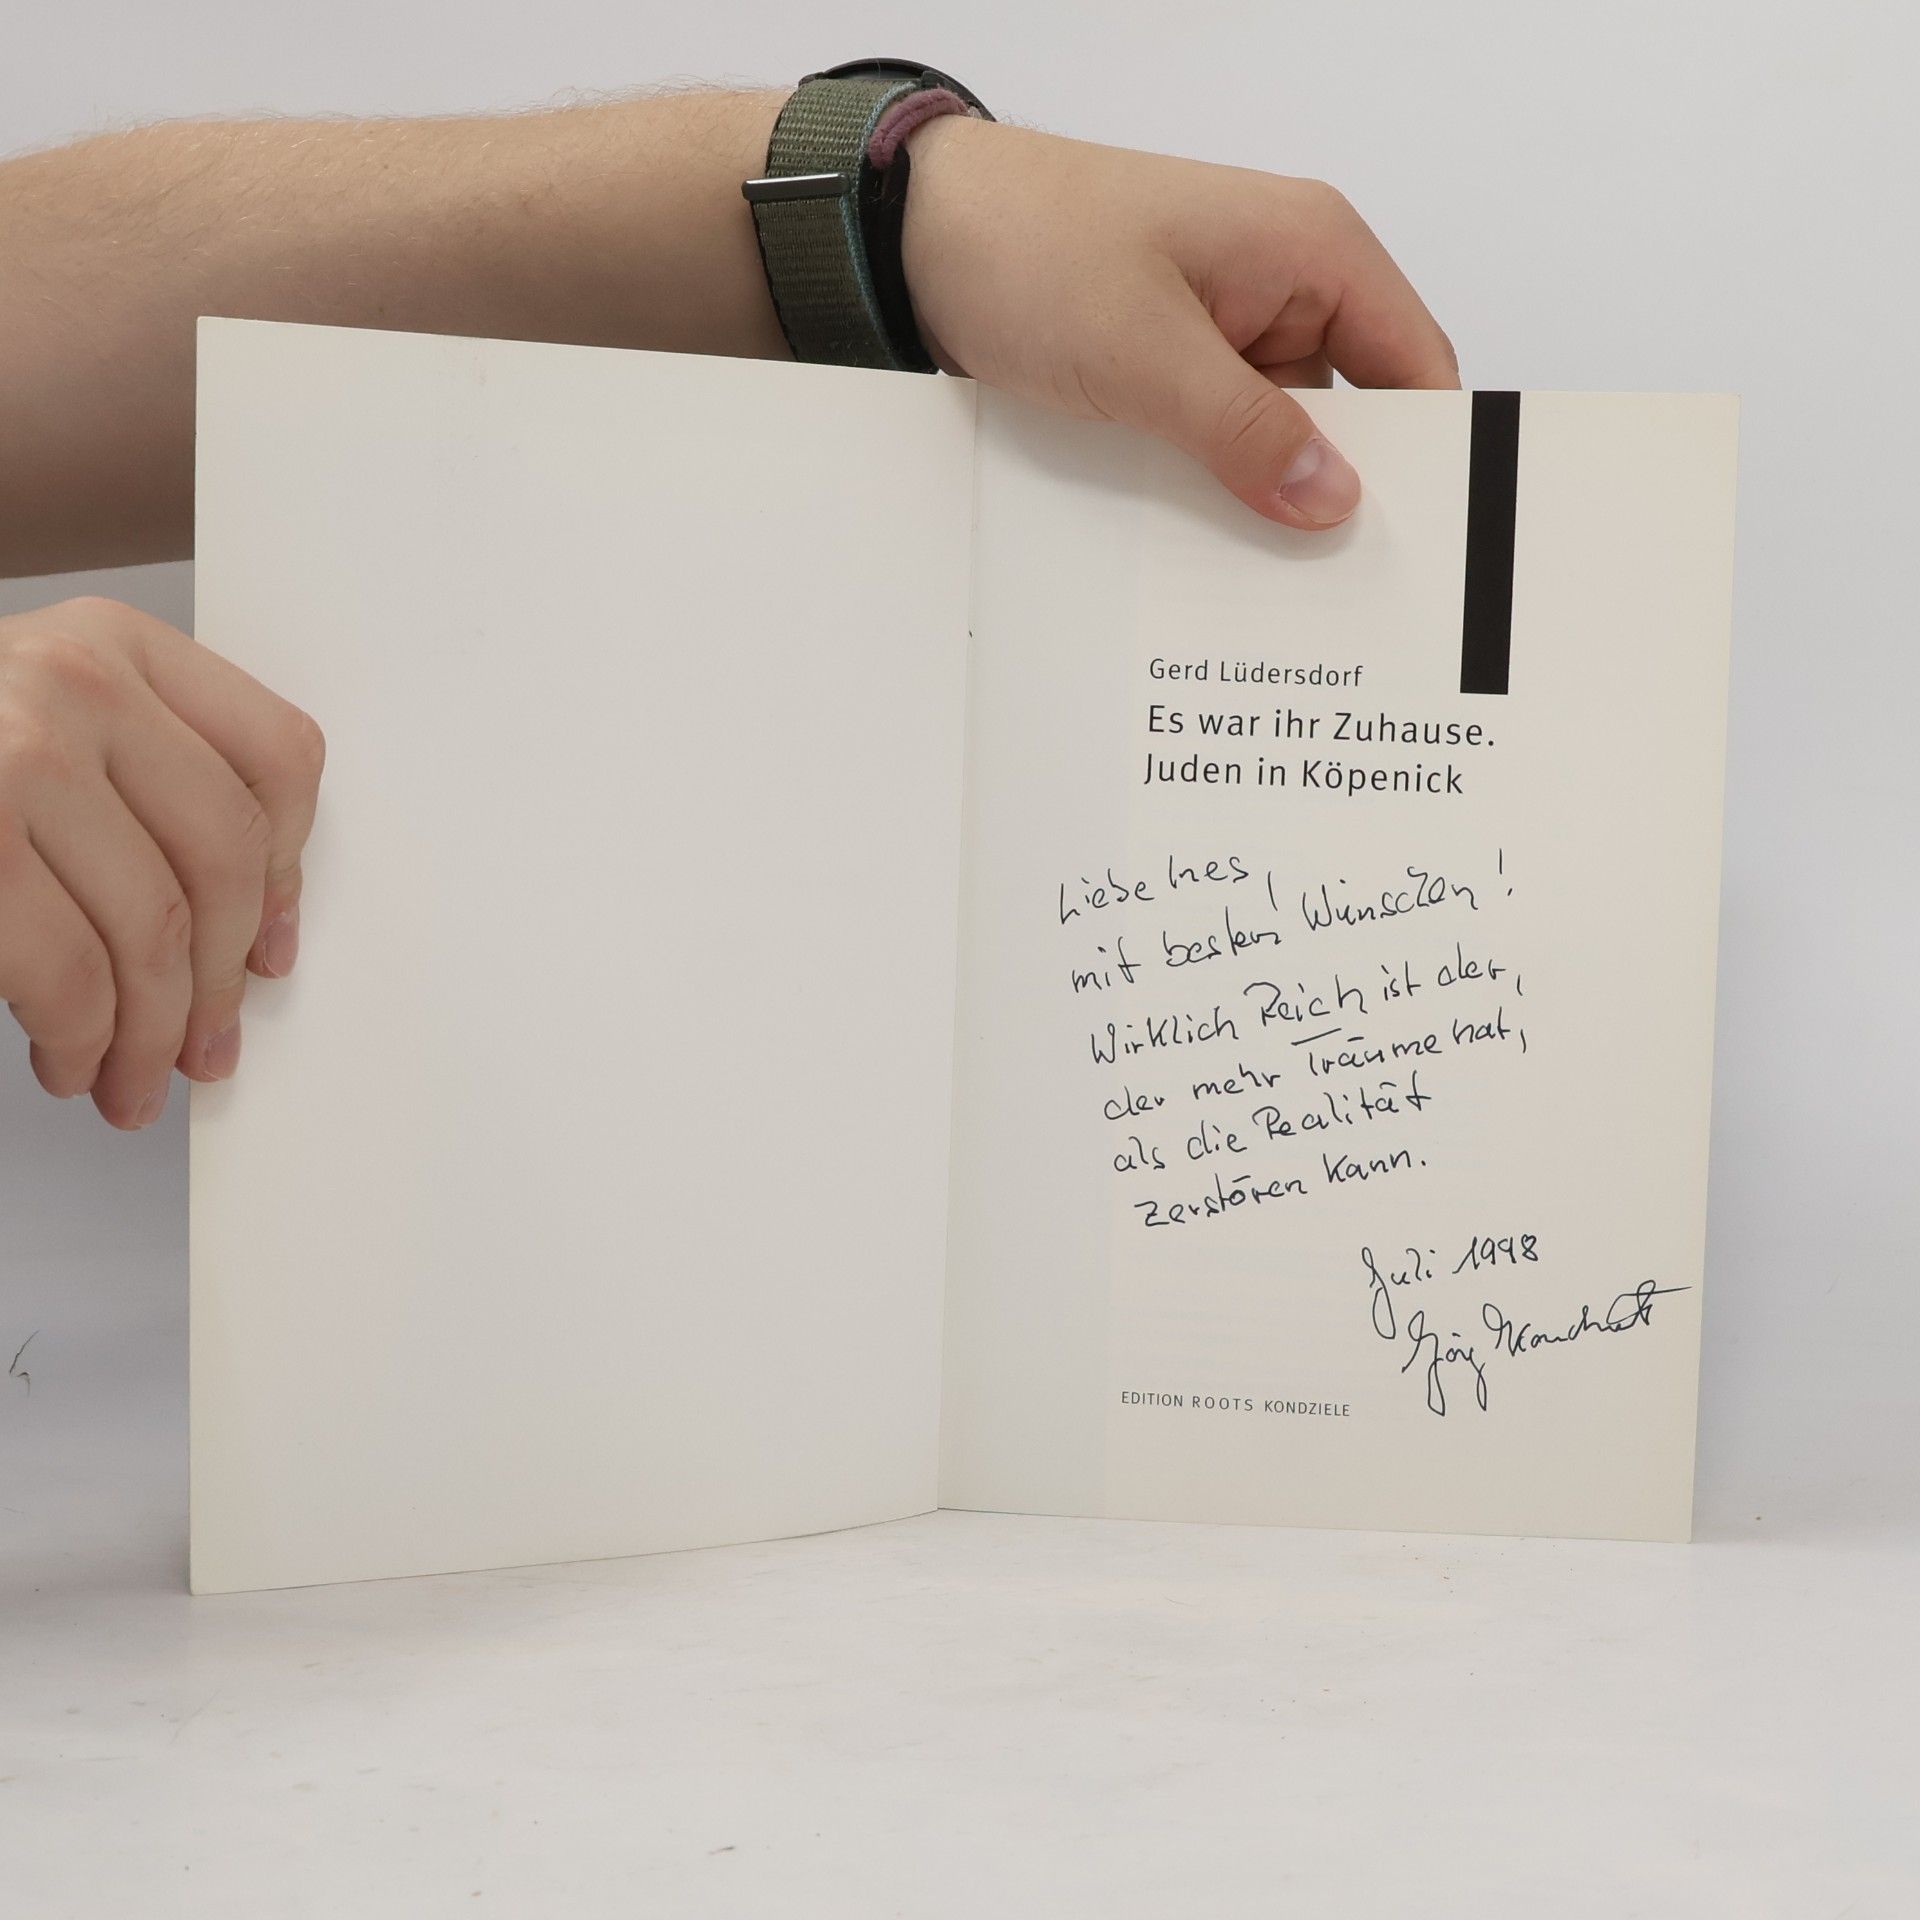 Gerd Lüdersdorf
Es war ihr Zuhause.
Juden in Köpenick
Liebe Ines,
mit besten Wünschen!
Wirklich Reich ist der,
der mehr Träume hat,
als die Realität
zerstören kann.
Juli 1998
Jörg
EDITION ROOTS KONDZIELE